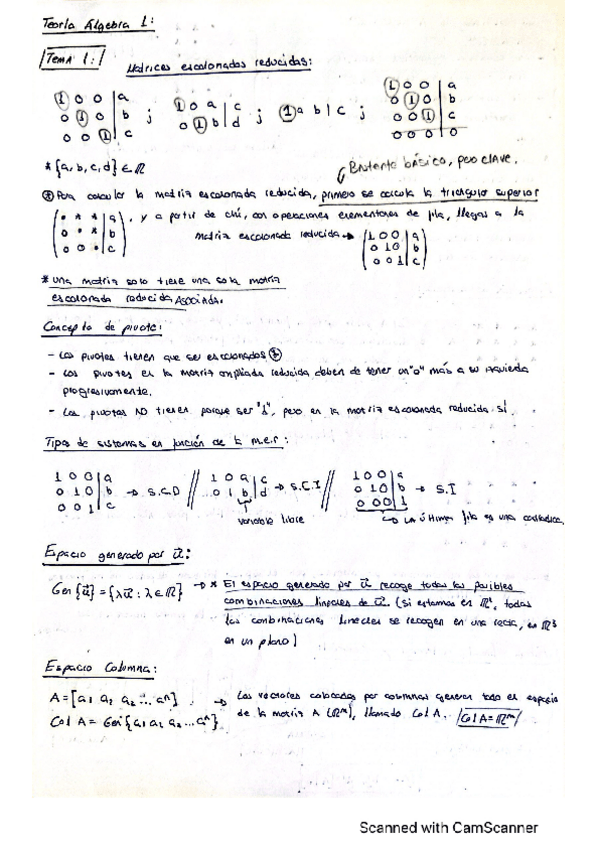 Teoría Álgebra 1:
Tema 1:
Matrices escalonadas reducidas:
1 0 0 | a    1 0 a | c    1 a b | c    1 0 0 | a
0 1 0 | b ;  0 1 b | d ;            ;  0 1 0 | b
0 0 1 | c                              0 0 1 | c
0 0 0 | 0
* {a, b, c, d} ∈ ℝ
Bastante básico, pero clave.
Para calcular la matriz escalonada reducida, primero se calcula la triangular superior
( • * * | a
0 • * | b
0 0 • | c ), y a partir de ahí, con operaciones elementales de fila, llegas a la
matriz escalonada reducida → ( 1 0 0 | a
0 1 0 | b
0 0 1 | c )
* una matriz solo tiene una sola matriz
escalonada reducida asociada.
Concepto de pivote:
- Los pivotes tienen que ser escalonados
- Los pivotes en la matriz ampliada reducida deben de tener un "0" más a su izquierda
progresivamente.
- Los pivotes NO tienen porque ser "1", pero en la matriz escalonada reducida sí.
Tipos de sistemas en función de la m.e.r:
1 0 0 | a            1 0 a | c            1 0 0 | a
0 1 0 | b → S.C.D // 0 1 b | d → S.C.I // 0 1 0 | b → S.I
0 0 1 | c                                 0 0 0 | 1
variable libre
→ La última fila es una
Espacio generado por u⃗:
Gen {u⃗} = {λu⃗ : λ ∈ ℝ} → * El espacio generado por u⃗ recoge todas las posibles
combinaciones lineales de u⃗. (Si estamos en ℝ, todas
las combinaciones lineales se recogen en una recta, en ℝ³
en un plano)
Espacio Columna:
A = [a1 a2 a2 ... aⁿ] → Los vectores colocados por columnas generan todo el espacio
de la matriz A (ℝᵐ), llamado Col A. Col A = ℝᵐ
Col A = Gen {a1 a2 a2 ... aⁿ}
Scanned with CamScanner